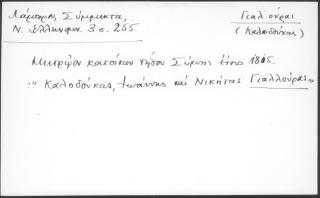 Λάμπρου, Σύμμικτα,
Ν. Ελληνομν. 3 σ. 255
Γιαλλούρας
(Καλοδούκας)
Μητρῷον κατοίκων νήσου Σύμης ἔτους 1815.
:" Καλοδούκας, Ἰωάννης καὶ Νικήτας Γιαλλούρας"